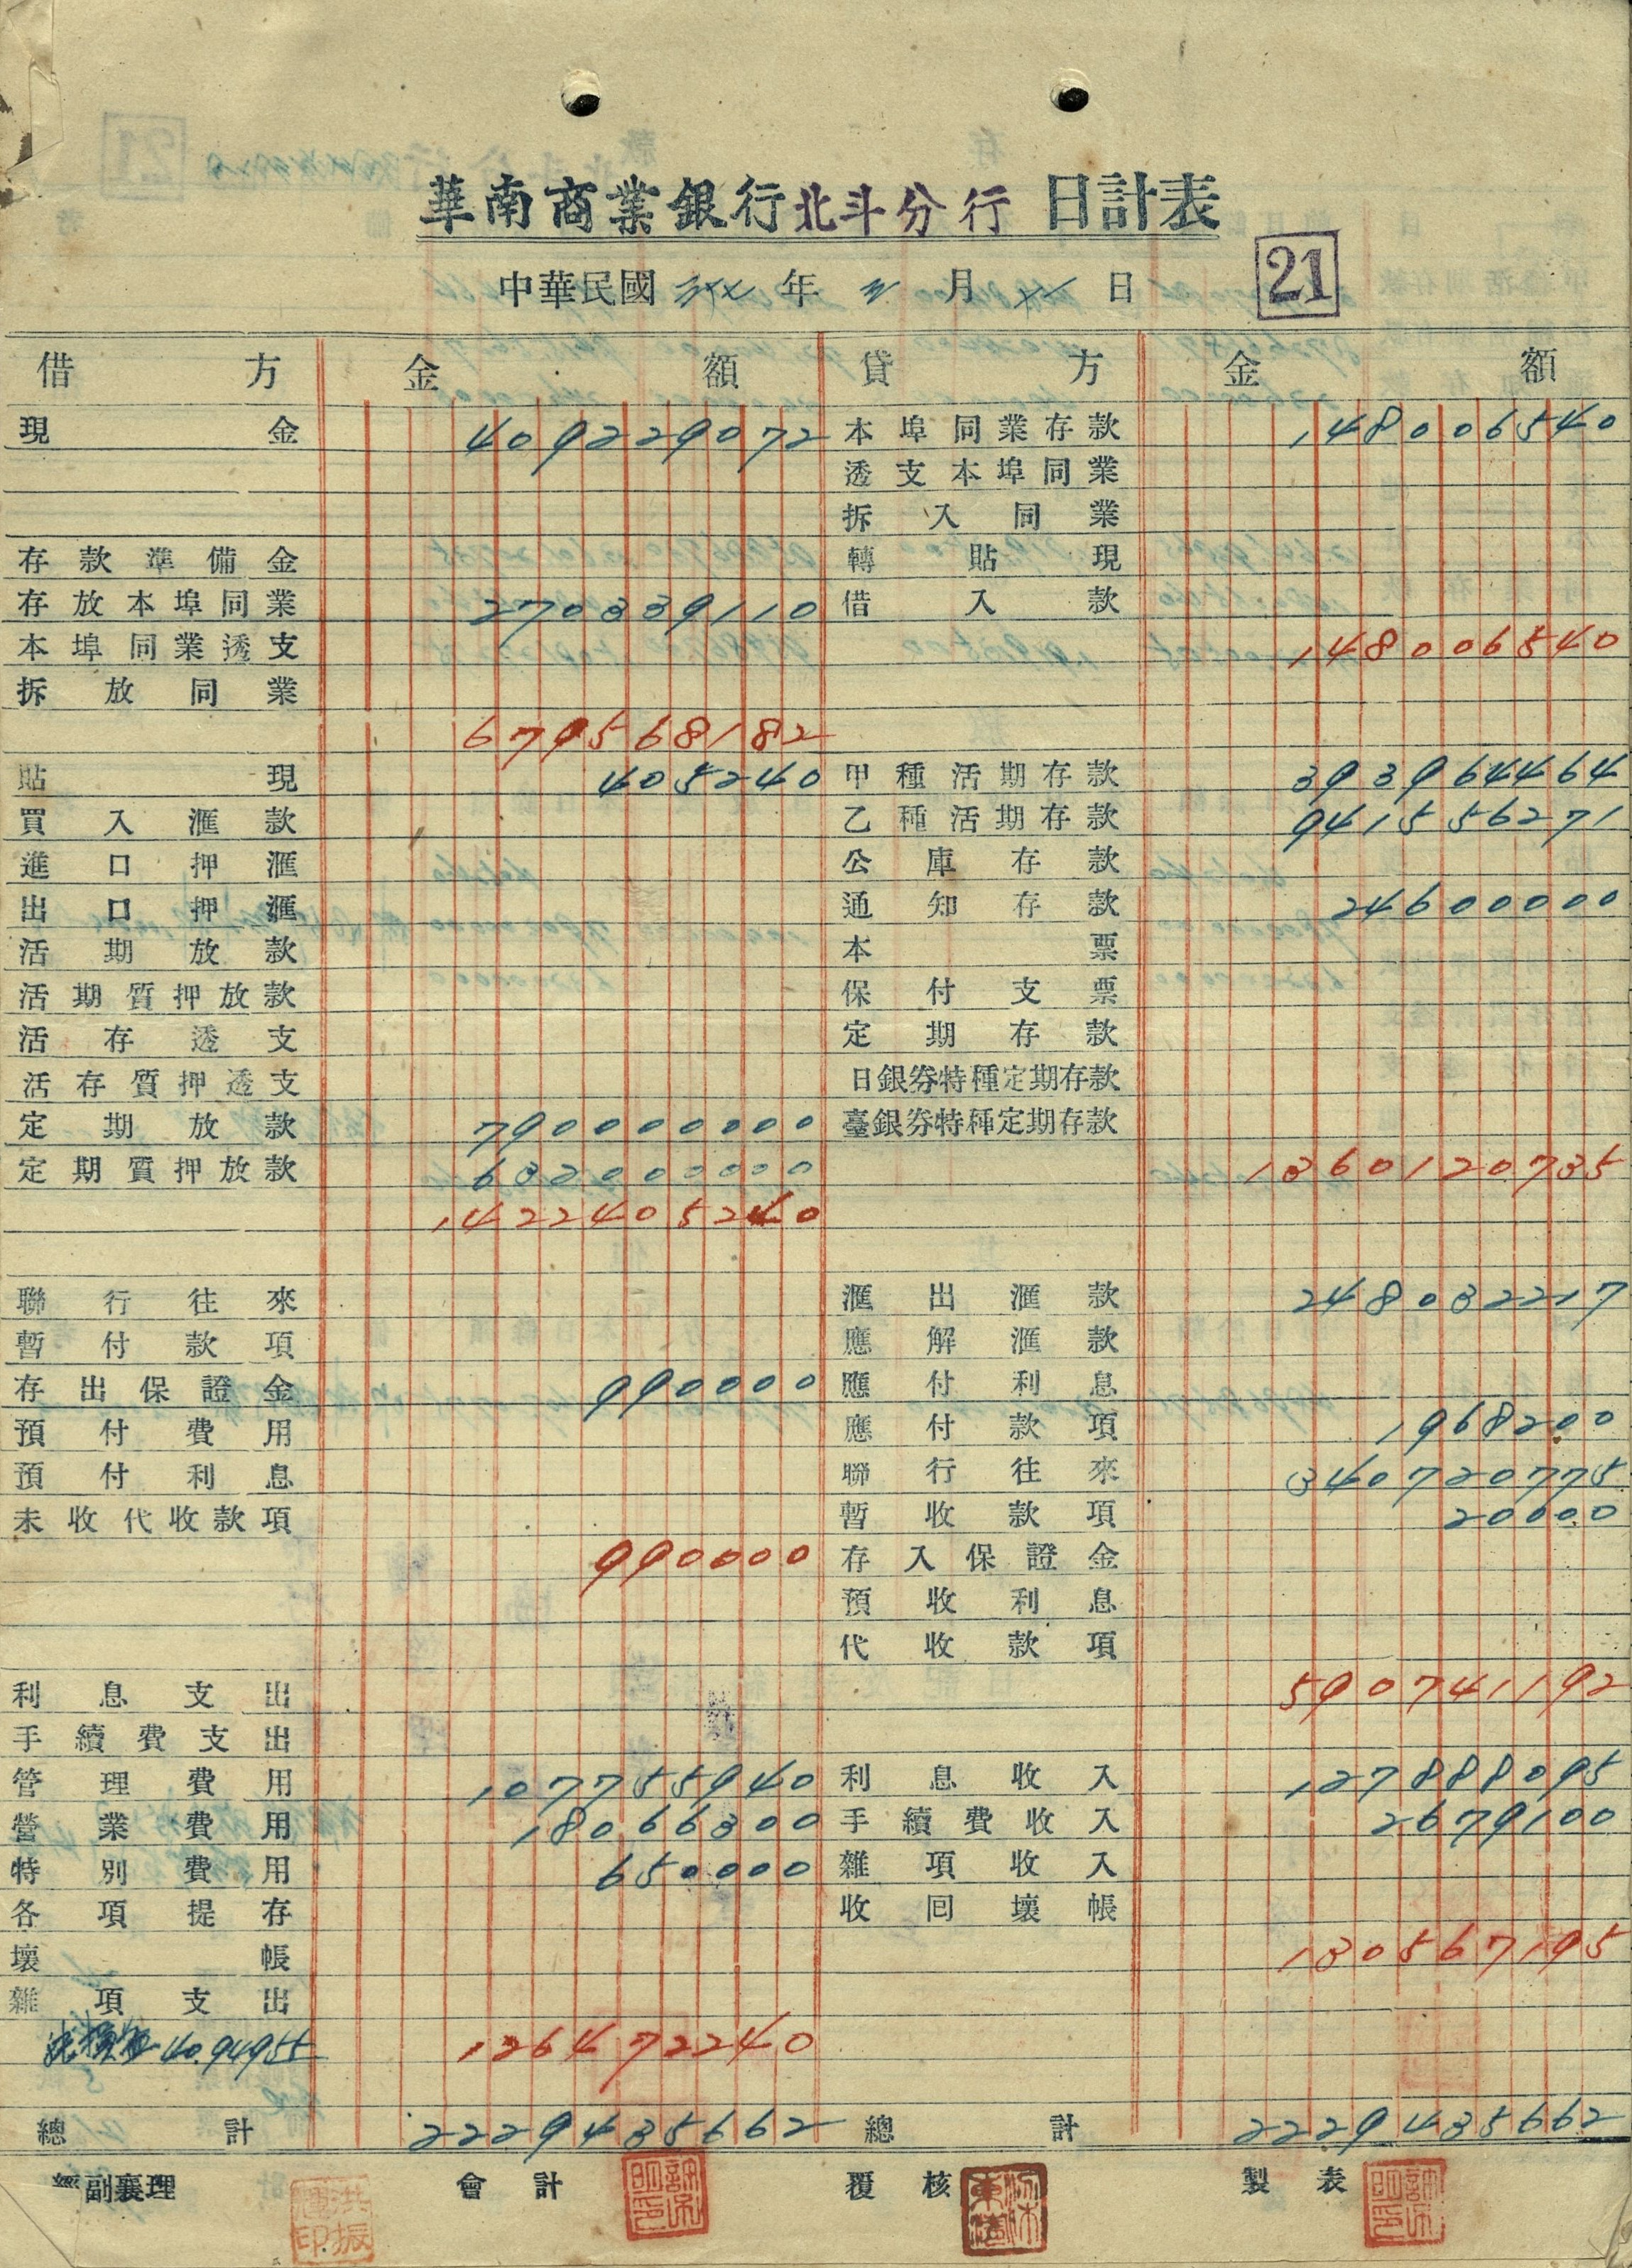 華南商業銀行北斗分行 日計表
中華民國 年 月 日
21
借方 金額 貸方 金額
現金 409229072 本埠同業存款 148006540
透支本埠同業
拆入同業
存款準備金 轉貼現
存放本埠同業 270339110 借入款
本埠同業透支 148006540
拆放同業
679568182
貼現 405240 甲種活期存款 393964464
買入滙款 乙種活期存款 941556271
進口押滙 公庫存款
出口押滙 通知存款 24600000
活期放款 本票
活期質押放款 保付支票
活存透支 定期存款
活存質押透支 日銀券特種定期存款
定期放款 790000000 臺銀券特種定期存款
定期質押放款 632000000 1360120735
1422405240
聯行往來 滙出滙款 248032217
暫付款項 應解滙款
存出保證金 990000 應付利息
預付費用 應付款項 1968200
預付利息 聯行往來 340720775
未收代收款項 暫收款項 20000
990000 存入保證金
預收利息
代收款項
利息支出 590741192
手續費支出
管理費用 107755940 利息收入 127888095
營業費用 18066300 手續費收入 2679100
特別費用 650000 雜項收入
各項提存 收回壞帳
壞帳 130567195
雜項支出
4094955 126472240
總計 2229435662 總計 2229435662
經副襄理 會計 覆核 製表